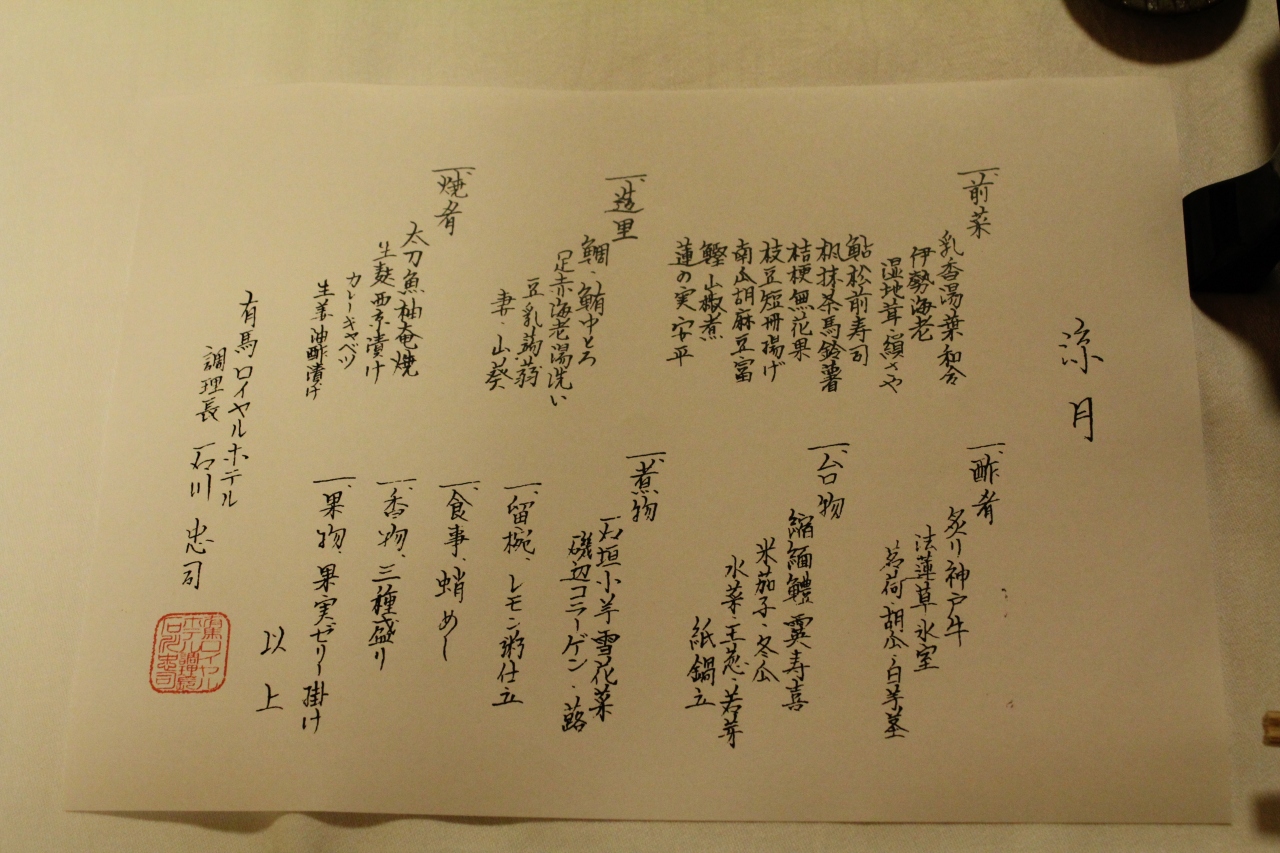 涼月
一、前菜
乳香湯葉和合
伊勢海老
湿地茸・絹さや
鮎松前寿司
楓抹茶馬鈴薯
桔梗無花果
枝豆短冊揚げ
南瓜胡麻豆富
鰹山椒煮
蓮の実 安平
一、造里
鯛、鮪中とろ
足赤海老湯洗い
豆乳蒟蒻
妻・山葵
一、焼肴
太刀魚柚庵焼
生麩西京漬け
カレーキャベツ
生姜油酢漬け
一、酢肴
炙り神戸牛
法蓮草氷室
茗荷・胡瓜・白芋茎
一、台物
縮緬鱧 霙寿喜
米茄子・冬瓜
水菜・玉葱・若芽
紙鍋立
一、煮物
石垣小芋雪花菜
磯辺コラーゲン・蕗
一、留椀、レモン粥仕立
一、食事、蛸めし
一、香物、三種盛り
一、果物、果実ゼリー掛け
以上
有馬ロイヤルホテル
調理長 石川 忠司